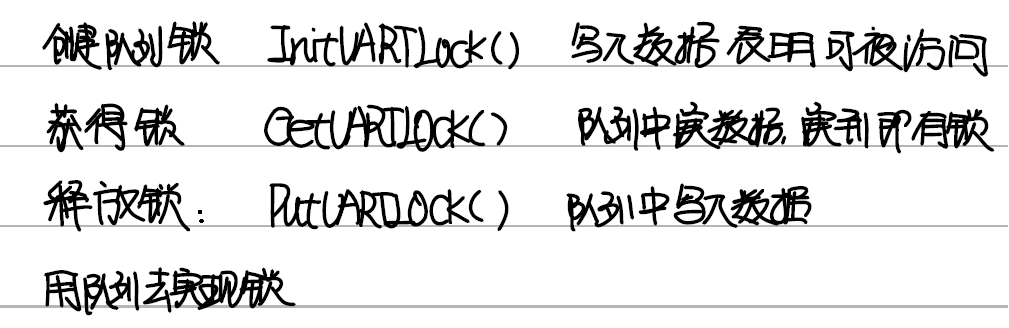 创建队列锁 InitUARTLock() 写入数据表明可被访问
获得锁 GetUARTLock() 队列中读数据,读到即有锁
释放锁: PutUARTLOCK() 队列中写入数据
用队列去实现锁